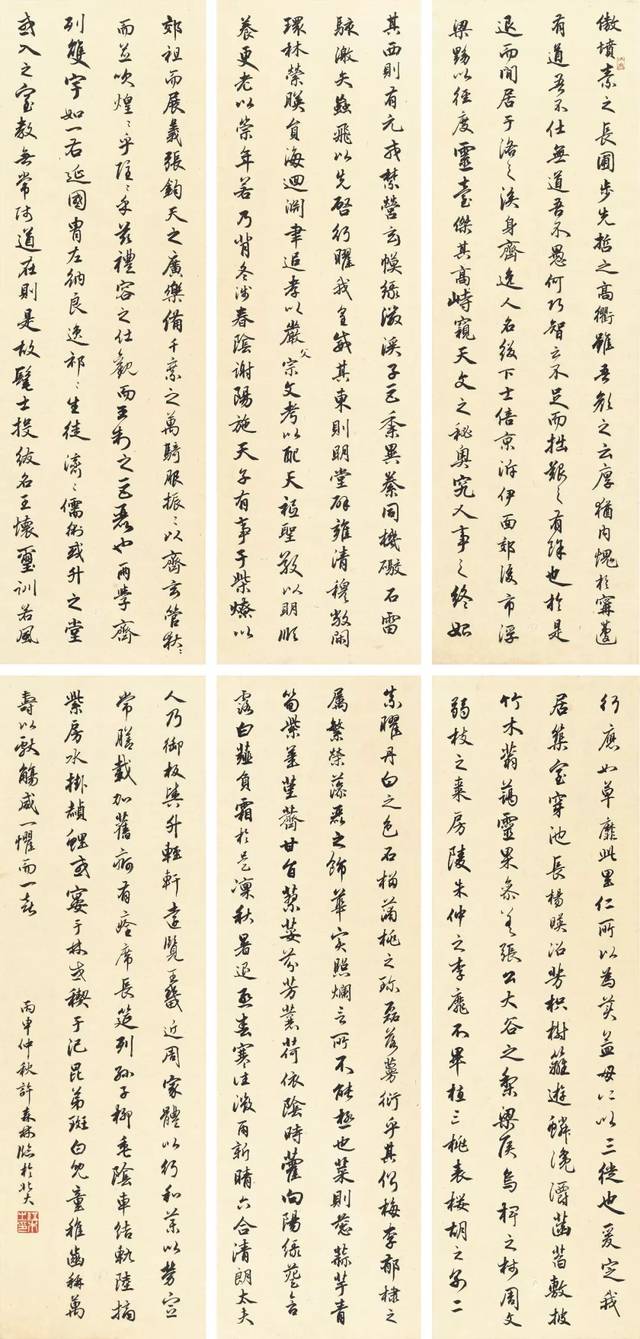 傲墳素之長圃步先哲之高衢雖吾顏之云厚猶内愧於甯蘧
有道吾不仕無道吾不愚何巧智之不足而拙艱之有餘也於是
退而閒居于洛之涘身齊逸人名綴下士倍京泝伊面郊後市浮
梁黝以徑度靈臺傑其高峙窺天文之秘奥究人事之終始
其西則有元戎禁營玄幙綠徽溪子巨黍異絭同機礮石雷
駭激矢蝱飛以先啓行曜我皇威其東則明堂辟雍清穆敞閑
環林縈映員海迴淵聿追孝以嚴父宗文考以配天祗聖敬以明順
養更老以崇年若乃背冬涉春陰謝陽施天子有事于柴燎以
郊祖而展義張鈞天之廣樂備千乘之萬騎服振〻以齊玄管啾〻
而並吹煌〻乎隱〻乎茲禮容之壯觀而王制之巨麗也兩學齊
列雙宇如一右延國胄左納良逸祁〻生徒濟〻儒術或升之堂
或入之室教無常師道在則是故髦士投紱名王懷璽訓若風
行應如草靡此里仁所以為美孟母所以三徙也爰定我
居築室穿池長楊映沼芳枳樹籬遊鱗瀺灂菡萏敷披
竹木蓊藹靈果參差張公大谷之梨梁侯烏椑之柿周文
弱枝之棗房陵朱仲之李靡不畢植三桃表櫻胡之別二
柰曜丹白之色石榴蒲桃之珍磊落蔓衍乎其側梅李郁棣之
屬繁榮藻麗之飾華實照爛言所不能極也菜則葱蒜芋青
筍紫薑堇薺甘旨蓼荾芬芳蘘荷依陰時藿向陽綠葵含
露白薤負霜於是凜秋暑退熙春寒往微雨新晴六合清朗太夫
人乃御板輿升輕軒遠覽王畿近周家體以行和藥以勞宣
常膳載加舊痾有痊席長筵列孫子柳垂陰車結軌陸摘
紫房水掛赬鯉或宴于林或禊于汜昆弟斑白兒童稚齒稱萬
壽以獻觴咸一懼而一喜
丙申仲秋許森林臨於北大